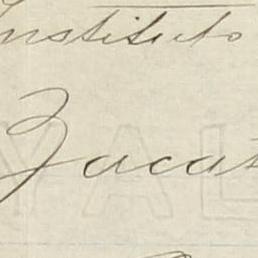 Instituto
Zacat